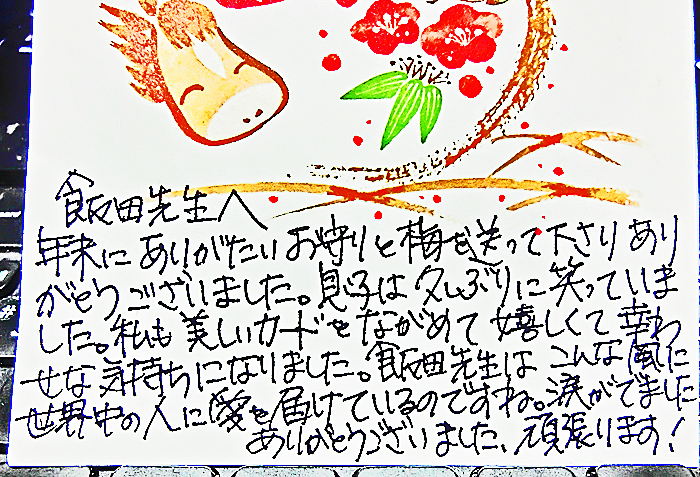 飯田先生へ
年末にありがたいお守りと梅を送って下さりあり
がとうございました。息子は久しぶりに笑っていま
した。私も美しいカードをながめて嬉しくて幸わ
せな気持ちになりました。飯田先生はこんな風に
世界中の人に愛を届けているのですね。涙がでました
ありがとうございました、頑張ります!